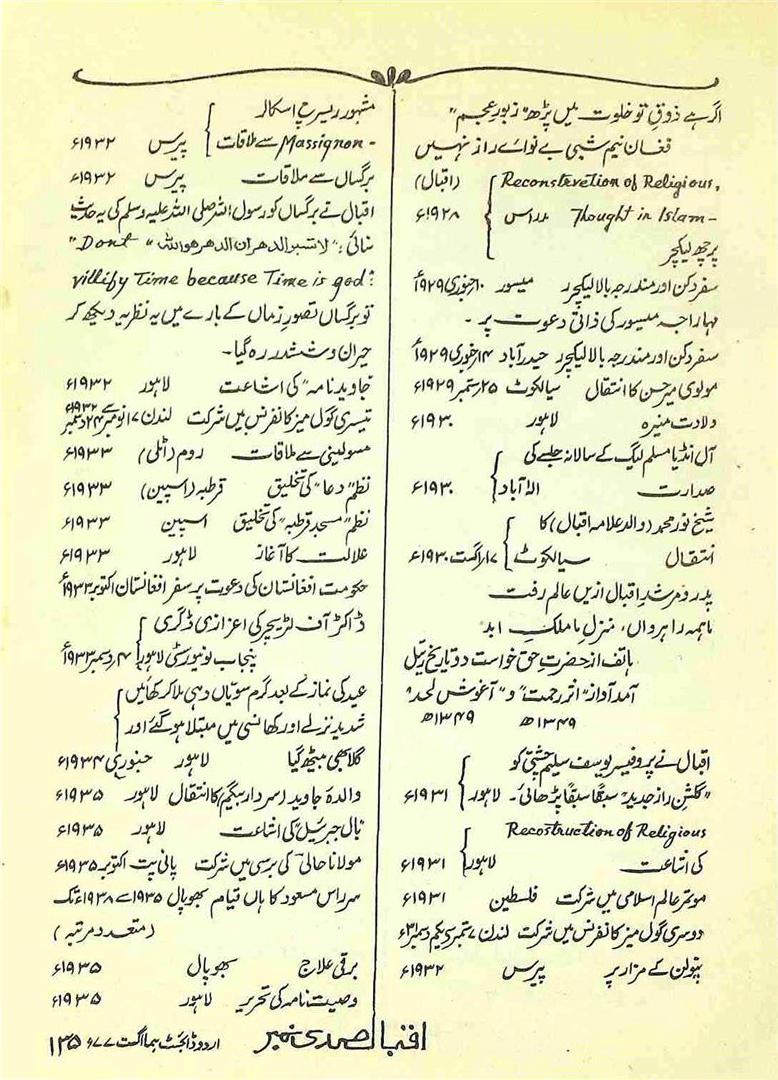 اگر ہے ذوق تو خلوت میں پڑھ "زبورِ عجم"
فغانِ نیم شبی بے نوائے راز نہیں
(اقبال) Reconstrvetion of Religious,
Thought in Islam- مدراس ۱۹۲۸ء
پر چھ لیکچر
سفر دکن اور مندرجہ بالا لیکچر میسور ۱۰ر جنوری ۱۹۲۹ء
مہاراجہ میسور کی ذاتی دعوت پر۔
سفر دکن اور مندرجہ بالا لیکچر حیدرآباد ۱۴ر جنوری ۱۹۲۹ء
مولوی میر حسن کا انتقال سیالکوٹ ۲۵ ستمبر ۱۹۲۹ء
ولادت منیرہ لاہور ۱۹۳۰ء
آل انڈیا مسلم لیگ کے سالانہ جلسے کی
صدارت الہ آباد ۱۹۳۰ء
شیخ نور محمد (والد علامہ اقبال) کا
انتقال سیالکوٹ ۱۷ر اگست ۱۹۳۰ء
پدر و مرشدِ اقبال ازیں عالم رفت
ماہمہ راہرواں، منزلِ ما ملکِ ابد
ہاتف از حضرتِ حق خواست دو تاریخ رحیل
آمد آواز "اثر رحمت" و "آغوش لحد"
۱۳۴۹ھ ۱۳۴۹ھ
اقبال نے پروفیسر یوسف سلیم چشتی کو
"گلشن راز جدید" سبقًا سبقًا پڑھائی۔ لاہور ۱۹۳۱ء
Recostruction of Religious
کی اشاعت لاہور ۱۹۳۱ء
موتمر عالم اسلامی میں شرکت فلسطین ۱۹۳۱ء
دوسری گول میز کانفرنس میں شرکت لندن ۷ ستمبر یکم دسمبر ۳۱ء
نپولن کے مزار پر پیرس ۱۹۳۲ء
مشہور ریسرچ اسکالر
Massignon- سے ملاقات پیرس ۱۹۳۲ء
برگساں سے ملاقات پیرس ۱۹۳۲ء
اقبال نے برگساں کو رسول اللہ صلی اللہ علیہ وسلم کی یہ حدیث
سنائی: "لا تسبو الدھر ان الدھر ھو اللہ" "Dont
villify Time because Time is god"
تو برگساں تصور زماں کے بارے میں یہ نظریہ دیکھ کر
حیران و ششدر رہ گیا۔
"جاوید نامہ" کی اشاعت لاہور ۱۹۳۲ء
تیسری گول میز کانفرنس میں شرکت لندن ۱۷ نومبر سے ۲۴ دسمبر ۱۹۳۲ء
مسولینی سے ملاقات روم (اٹلی) ۱۹۳۳ء
نظم "دعا" کی تخلیق قرطبہ (اسپین) ۱۹۳۳ء
نظم "مسجد قرطبہ" کی تخلیق اسپین ۱۹۳۳ء
علالت کا آغاز لاہور ۱۹۳۳ء
حکومت افغانستان کی دعوت پر سفر افغانستان اکتوبر ۱۹۳۳ء
ڈاکٹر آف لٹریچر کی اعزازی ڈگری
پنجاب یونیورسٹی لاہور ۴ر دسمبر ۱۹۳۳ء
عید کی نماز کے بعد گرم سویّاں دہی ملا کر کھائیں
شدید نزلے اور کھانسی میں مبتلا ہو گئے اور
گلا بھی بیٹھ گیا لاہور جنوری ۱۹۳۴ء
والدۂ جاوید (سردار بیگم) کا انتقال لاہور ۱۹۳۵ء
"بال جبریل" کی اشاعت لاہور ۱۹۳۵ء
مولانا حالی کی برسی میں شرکت پانی پت اکتوبر ۱۹۳۵ء
سر راس مسعود کا ہاں قیام بھوپال ۱۹۳۵ سے ۱۹۳۸ء تک
(متعدد مرتبہ)
برقی علاج بھوپال ۱۹۳۵ء
وصیت نامہ کی تحریر لاہور ۱۹۳۵ء
اقبال صدی نمبر
اردو ڈائجسٹ ہما اگست ۷۷ء ۱۳۵